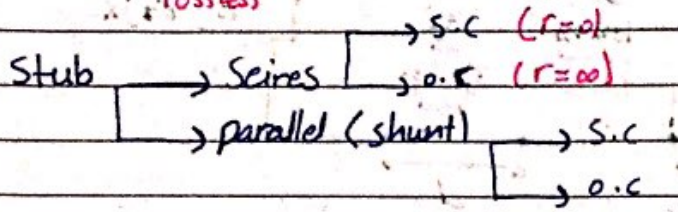 lossless
→ S.C (r=0)
Stub → Seires → o.c (r=∞)
→ parallel (shunt) → S.C
→ O.C